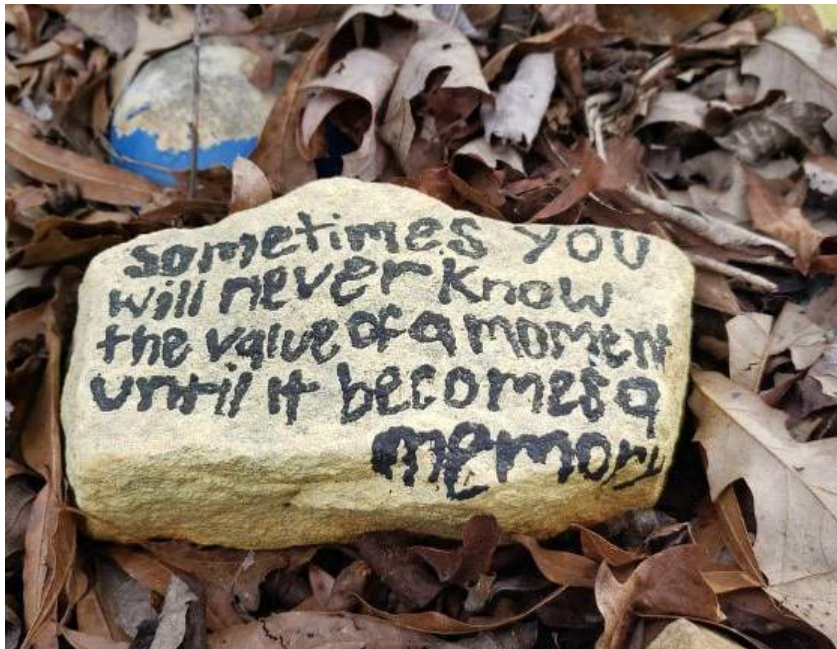 sometimes you
will never know
the value of a moment
until it becomes a
memory